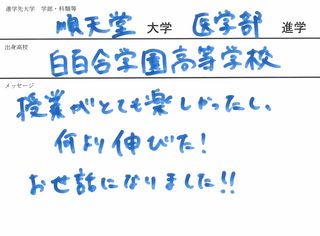 進学先大学 学部・科類等
順天堂 大学 医学部 進学
出身高校
白百合学園高等学校
メッセージ
授業がとても楽しかったし、
何より伸びた！
お世話になりました!!